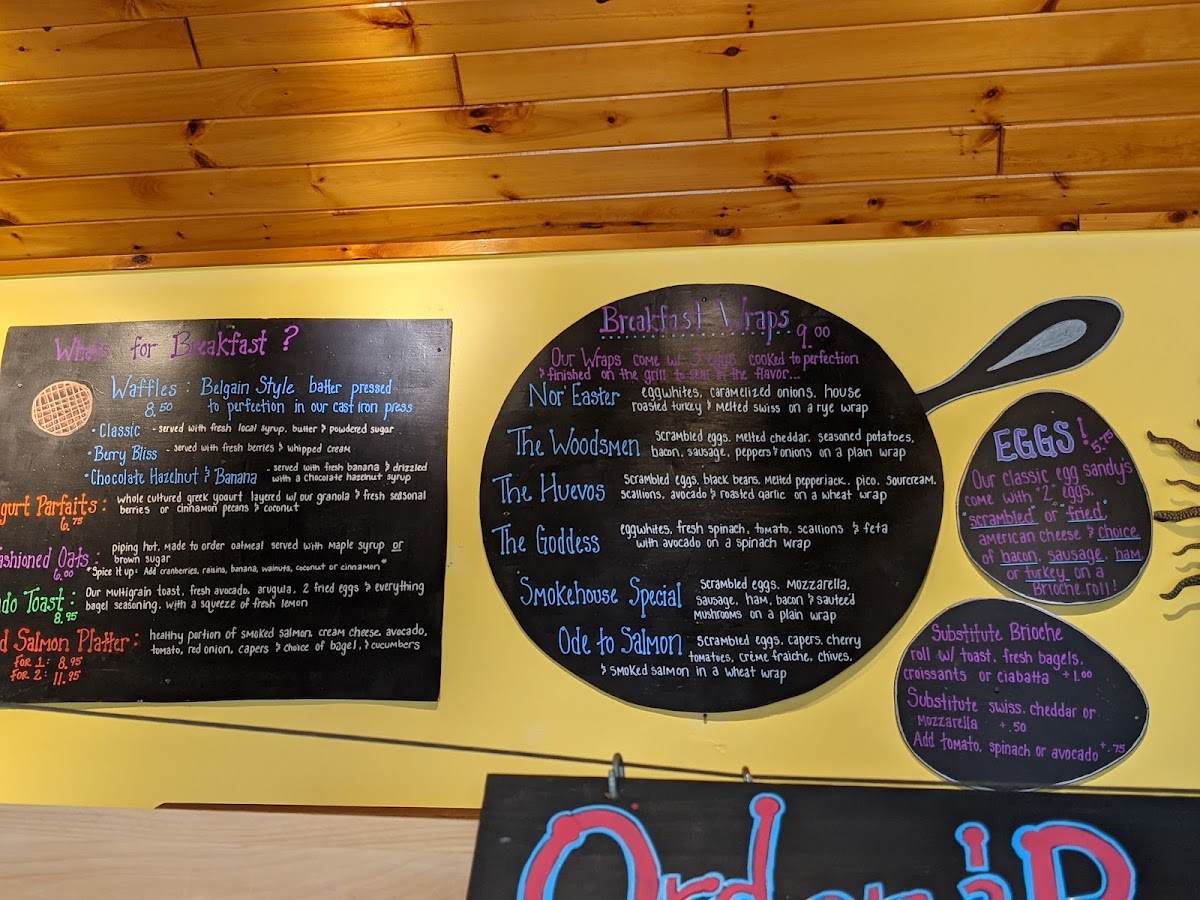 What's for Breakfast ?
Waffles : Belgain Style batter pressed
8.50 to perfection in our cast iron press
• Classic - served with fresh local syrup, butter & powdered sugar
• Berry Bliss - served with fresh berries & whipped cream
• Chocolate Hazelnut & Banana - served with fresh banana & drizzled
with a chocolate hazelnut syrup
gurt Parfaits : whole cultured greek yogurt layered w/ our granola & fresh seasonal
6.75 berries or cinnamon pecans & coconut
ashioned Oats : piping hot, made to order oatmeal served with maple syrup or
6.00 brown sugar
*Spice it up: Add cranberries, raisins, banana, walnuts, coconut or cinnamon*
do Toast : Our multigrain toast, fresh avocado, arugula, 2 fried eggs & everything
8.95 bagel seasoning, with a squeeze of fresh lemon
d Salmon Platter : healthy portion of smoked salmon, cream cheese, avocado,
For 1: 8.95 tomato, red onion, capers & choice of bagel, & cucumbers
For 2: 11.95
Breakfast Wraps 9.00
Our Wraps come w/ 3 eggs, cooked to perfection
& finished on the grill to seal in the flavor...
Nor'Easter eggwhites, caramelized onions, house
roasted turkey & melted swiss on a rye wrap
The Woodsmen scrambled eggs, melted cheddar, seasoned potatoes,
bacon, sausage, peppers & onions on a plain wrap
The Huevos scrambled eggs, black beans, melted pepperjack, pico, sourcream,
scallions, avocado & roasted garlic on a wheat wrap
The Goddess eggwhites, fresh spinach, tomato, scallions & feta
with avocado on a spinach wrap
Smokehouse Special scrambled eggs, mozzarella,
sausage, ham, bacon & sautee'd
mushrooms on a plain wrap
Ode to Salmon scrambled eggs, capers, cherry
tomatoes, crème fraiche, chives,
& smoked salmon in a wheat wrap
EGGS! 5.75
Our classic egg sandys
come with "2" eggs,
"scrambled" or "fried,"
american cheese & choice
of bacon, sausage, ham
or turkey on a
Brioche roll!
Substitute Brioche
roll w/ toast, fresh bagels,
croissants or ciabatta +1.00
Substitute swiss, cheddar or
mozzarella +.50
Add tomato, spinach or avocado +.75
Order